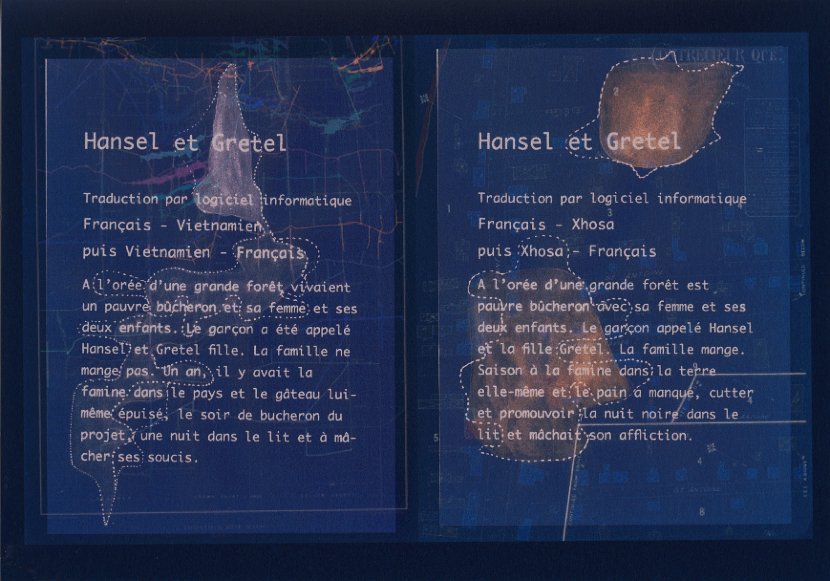 Hansel et Gretel
Traduction par logiciel informatique
Français - Vietnamien
puis Vietnamien - Français
A l'orée d'une grande forêt vivaient
un pauvre bûcheron et sa femme et ses
deux enfants. Le garçon a été appelé
Hansel et Gretel fille. La famille ne
mange pas. Un an, il y avait la
famine dans le pays et le gâteau lui-
même épuisé, le soir de bucheron du
projet, une nuit dans le lit et à mâ-
cher ses soucis.
Hansel et Gretel
Traduction par logiciel informatique
Français - Xhosa
puis Xhosa - Français
A l'orée d'une grande forêt est
pauvre bûcheron avec sa femme et ses
deux enfants. Le garçon appelé Hansel
et la fille Gretel. La famille mange.
Saison à la famine dans la terre
elle-même et le pain a manqué, cutter
et promouvoir la nuit noire dans le
lit et mâchait son affliction.
2
1
3
4
5
4
8